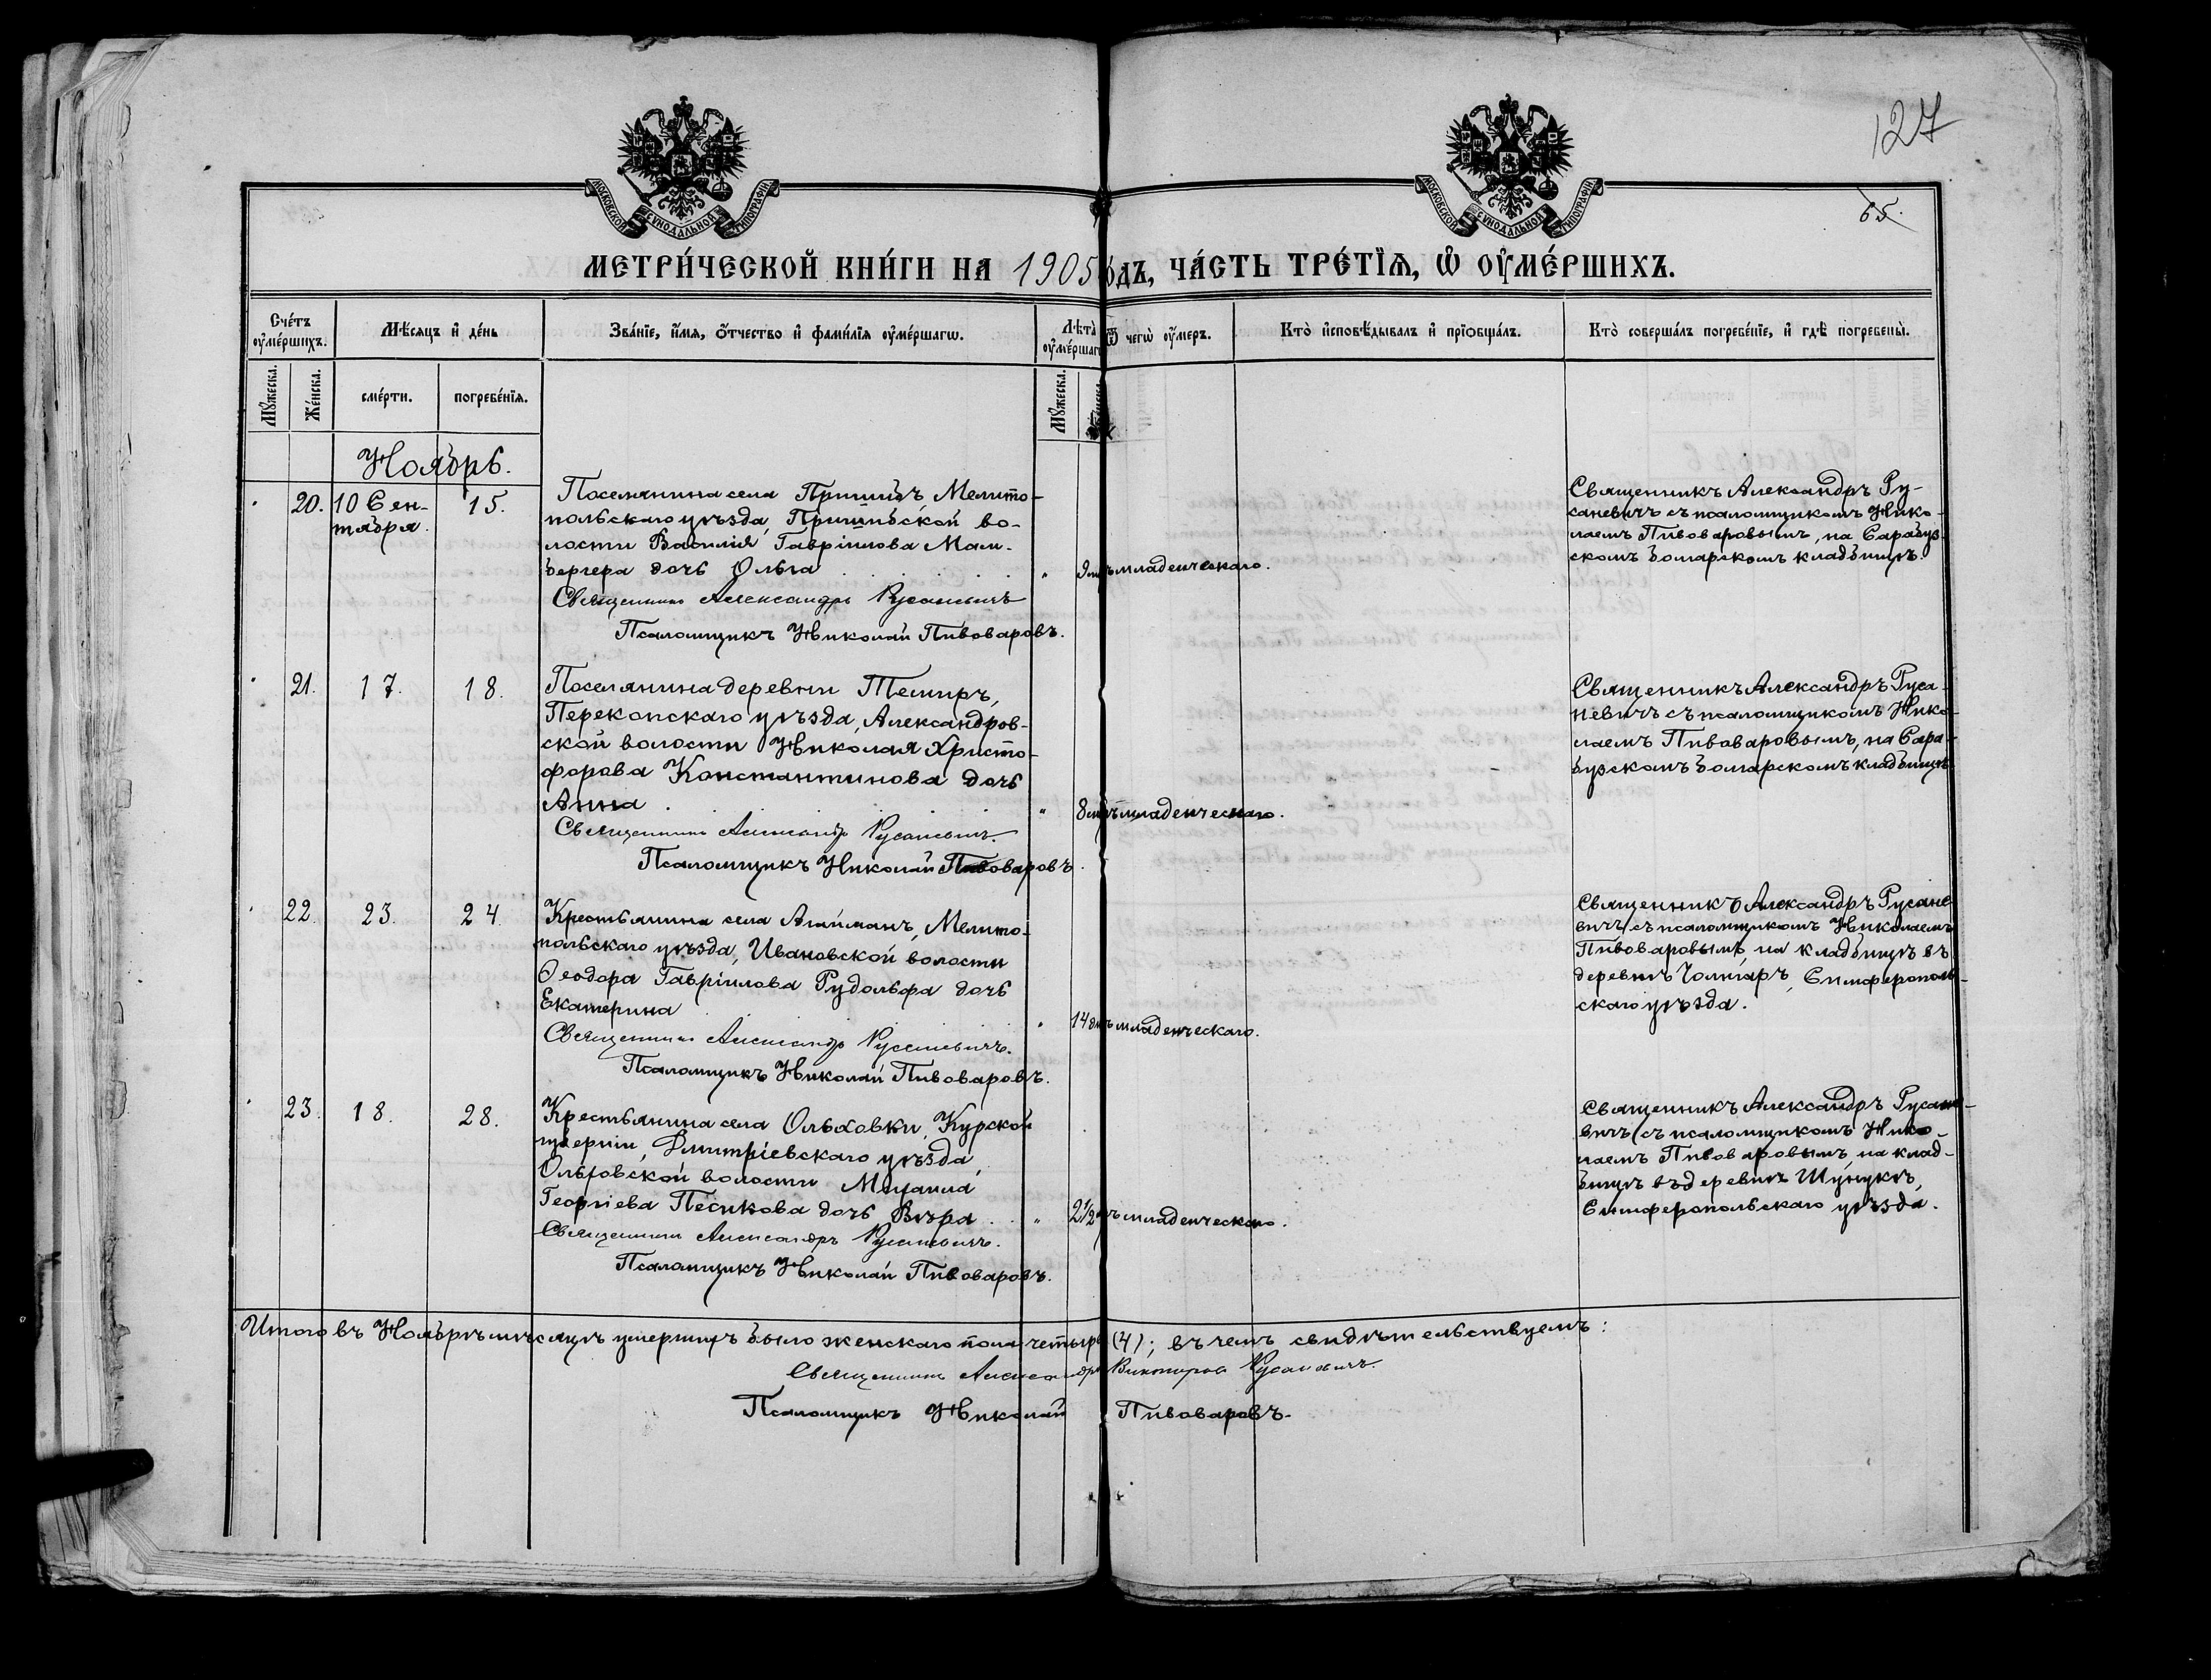 127
65.
МОСКОВСКОЙ СѴНОДАЛЬНОЙ ТИПОГРАФІИ
МОСКОВСКОЙ СѴНОДАЛЬНОЙ ТИПОГРАФІИ
МЕТРИ́ЧЕСКОЙ КНИ́ГИ НА 1905 ГО́ДЪ, ЧА́СТЬ ТРЕ́ТІЯ, Ѡ ОУМЕ́РШИХЪ.
Сче́тъ оуме́ршихъ.
Мѣ́сяцъ и де́нь
Зва́ніе, и́мя, о́тчество и фами́лія оуме́ршагѡ.
Лѣта̀ оуме́ршагѡ
Ѿ чегѡ̀ оу́меръ.
Кто̀ исповѣ́дывалъ и пріобща́лъ.
Кто̀ соверша́лъ погребе́ніе, и гдѣ̀ погребены̀.
Му́жеска.
Же́нска.
сме́рти.
погребе́нія.
Му́жеска.
Ноябрь.
20. 10 Сен-
тября.
15.
Поселянина села Пришибъ Мелито-
польскаго уѣзда, Пришибской во-
лости Василія Гавріилова Мам-
бергера дочь Ольга
" 9 младенческаго.
Священникъ Александръ Русаневичъ
Псаломщикъ Николай Пивоваровъ.
Священникъ Александръ Ру-
саневичъ съ псаломщикомъ Нико-
лаемъ Пивоваровымъ, на Сарабуз-
скомъ болгарскомъ кладбищѣ.
21. 17. 18.
Поселянина деревни Темиръ,
Перекопскаго уѣзда, Александров-
ской волости Николая Христо-
форова Константинова дочь
Анна
" 8 младенческаго.
Священникъ Александръ Русаневичъ.
Псаломщикъ Николай Пивоваровъ.
Священникъ Александръ Руса-
невичъ съ псаломщикомъ Нико-
лаемъ Пивоваровымъ, на Сара-
бузскомъ болгарскомъ кладбищѣ
22. 23. 24
Крестьянина села Агайманъ, Мелито-
польскаго уѣзда, Ивановской волости
Ѳеодора Гавріилова Рудольфа дочь
Екатерина
" 14 дн младенческаго.
Священникъ Александръ Русаневичъ.
Псаломщикъ Николай Пивоваровъ.
Священникъ Александръ Русане-
вичъ съ псаломщикомъ Николаемъ
Пивоваровымъ, на кладбищѣ въ
деревнѣ Чонгаръ, Симферополь-
скаго уѣзда.
23. 18. 28.
Крестьянина села Ольховки, Курской
губерніи, Дмитріевскаго уѣзда,
Ольховской волости Михаила
Георгіева Песикова дочь Вѣра
" 2 1/2 младенческаго.
Священникъ Александръ Русаневичъ.
Псаломщикъ Николай Пивоваровъ.
Священникъ Александръ Русане-
вичъ съ псаломщикомъ Нико-
лаемъ Пивоваровымъ, на клад-
бищѣ въ деревнѣ Шунукъ,
Симферопольскаго уѣзда.
Итого въ Ноябрѣ мѣсяцѣ умершихъ было женскаго пола четыре (4); въ чемъ свидѣтельствуемъ:
Священникъ Александръ Викторовъ Русаневичъ.
Псаломщикъ Николай Пивоваровъ.